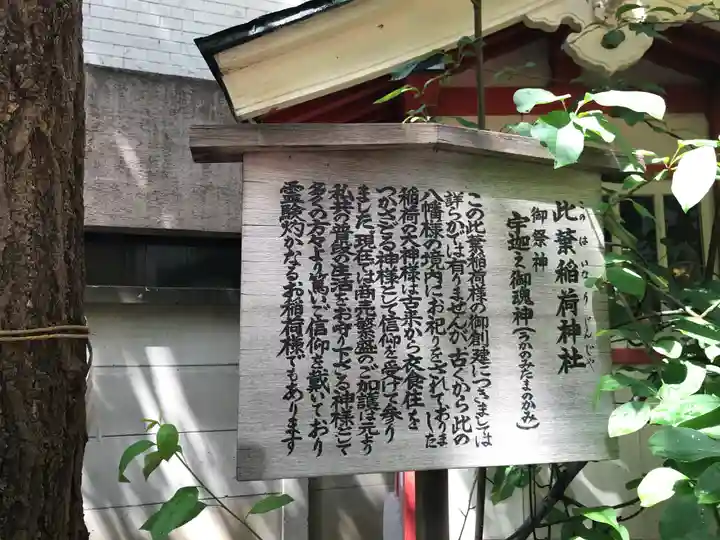 此葉稲荷神社
このはいなりじんじゃ
御祭神
宇迦之御魂神(うかのみたまのかみ)
この此葉稲荷様の御創建につきましては
詳らかでは有りませんが、古くから此の
八幡様の境内にお祀りをされておりま
した
稲荷の大神様は古来から衣食住を
つかさどる神様として信仰を受けて参り
ました、現在は商売繁盛のご加護は元より
私共の普段の生活をお守り下さる神様として
多くの方々より篤いご信仰を戴いており
霊験灼かなるお稲荷様でもあります